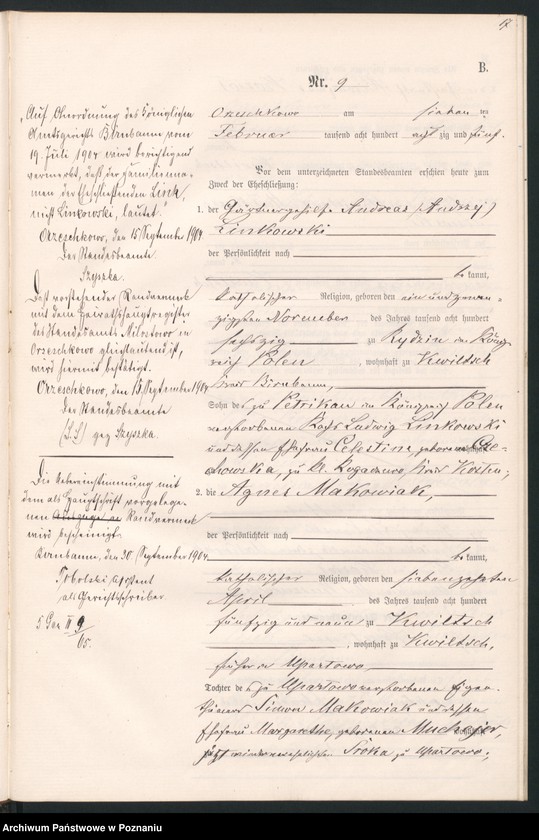 B.
Nr. 9
Orzeschkowo am sieben ten
Februar tausend acht hundert acht zig und fünf.
Vor dem unterzeichneten Standesbeamten erschien heute zum
Zweck der Eheschließung:
1. der Gärtnergehilfe Andreas (Andrzej)
Linkowski
der Persönlichkeit nach
be kannt,
katholischer Religion, geboren den ein und zwan-
zigsten November des Jahres tausend acht hundert
sechszig zu Rydzin im König
reich Polen, wohnhaft zu Kwiltsch
Kreis Birnbaum,
Sohn des zu Petrikau im Königreich Polen
verstorbenen Kochs Ludwig Linkowski
und dessen Ehefrau Celestine, geborenen
zu Kreis Kosten;
2. die Agnes Makowiak,
der Persönlichkeit nach
be kannt,
katholischer Religion, geboren den siebenzehnten
April des Jahres tausend acht hundert
fünfzig und neun zu Kwiltsch
, wohnhaft zu Kwiltsch,
früher in Upartowo
Tochter des zu Upartowo verstorbenen Eigen-
thümers Simon Makowiak und dessen
Ehefrau Margarethe, geborenen
jetzt wiederverehelichten Sroka zu Upartowo;
Auf Anordnung des Königlichen
Amtsgerichts Birnbaum vom
19. Juli 1904 wird berichtigend
vermerkt, daß der Familienna-
men der Eheschließenden
nicht Linkowski, lautet.
Orzeschkowo, den 15 September 1904
Der Standesbeamte
Szyszka.
Daß vorstehender Randvermerk
mit dem Heiratshauptregister
des Standesamts Milostowo in
Orzeschkowo gleichlautend ist,
wird hiermit bestätigt.
Orzeschkowo, den 15 September 1904
Der Standesbeamte
(L.S.) gez Szyszka.
Die Uebereinstimmung mit
dem als Hauptschrift vorgelege-
nen Auszuge Randvermerk
wird bescheinigt.
Birnbaum, den 20. September 1904
Tobolski, Assistent
als Gerichtsschreiber
5 Gen II 9
/05.
Archiwum Państwowe w Poznaniu